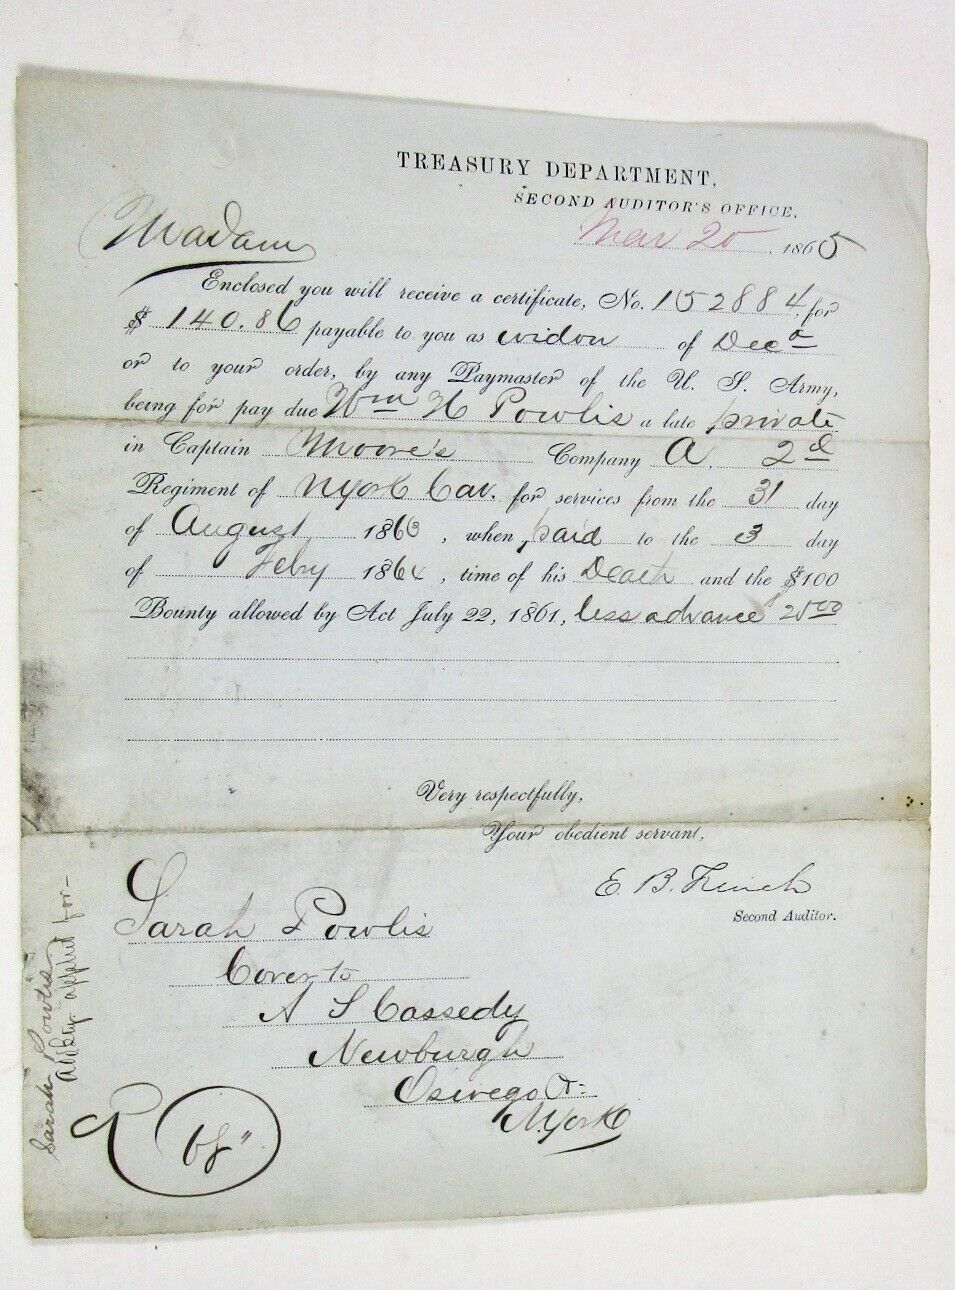 TREASURY DEPARTMENT,
SECOND AUDITOR'S OFFICE,
Mar 20, 1865
Madam
Enclosed you will receive a certificate, No. 152884, for
$ 140.86 payable to you as widow of Decd
or to your order, by any Paymaster of the U. S. Army,
being for pay due Wm H Powlis a late private
in Captain Moore's Company A, 2d
Regiment of NYork Cav. for services from the 31 day
of August 1863, when paid to the 3 day
of Feby 1864, time of his Death and the $100
Bounty allowed by Act July 22, 1861, less advance 2500
Very respectfully,
Your obedient servant,
E. B. French
Second Auditor.
Sarah Powlis
Cover to
A S Cassedy
Newburgh
Oswego
N.York
Sarah Powlis
applied for-